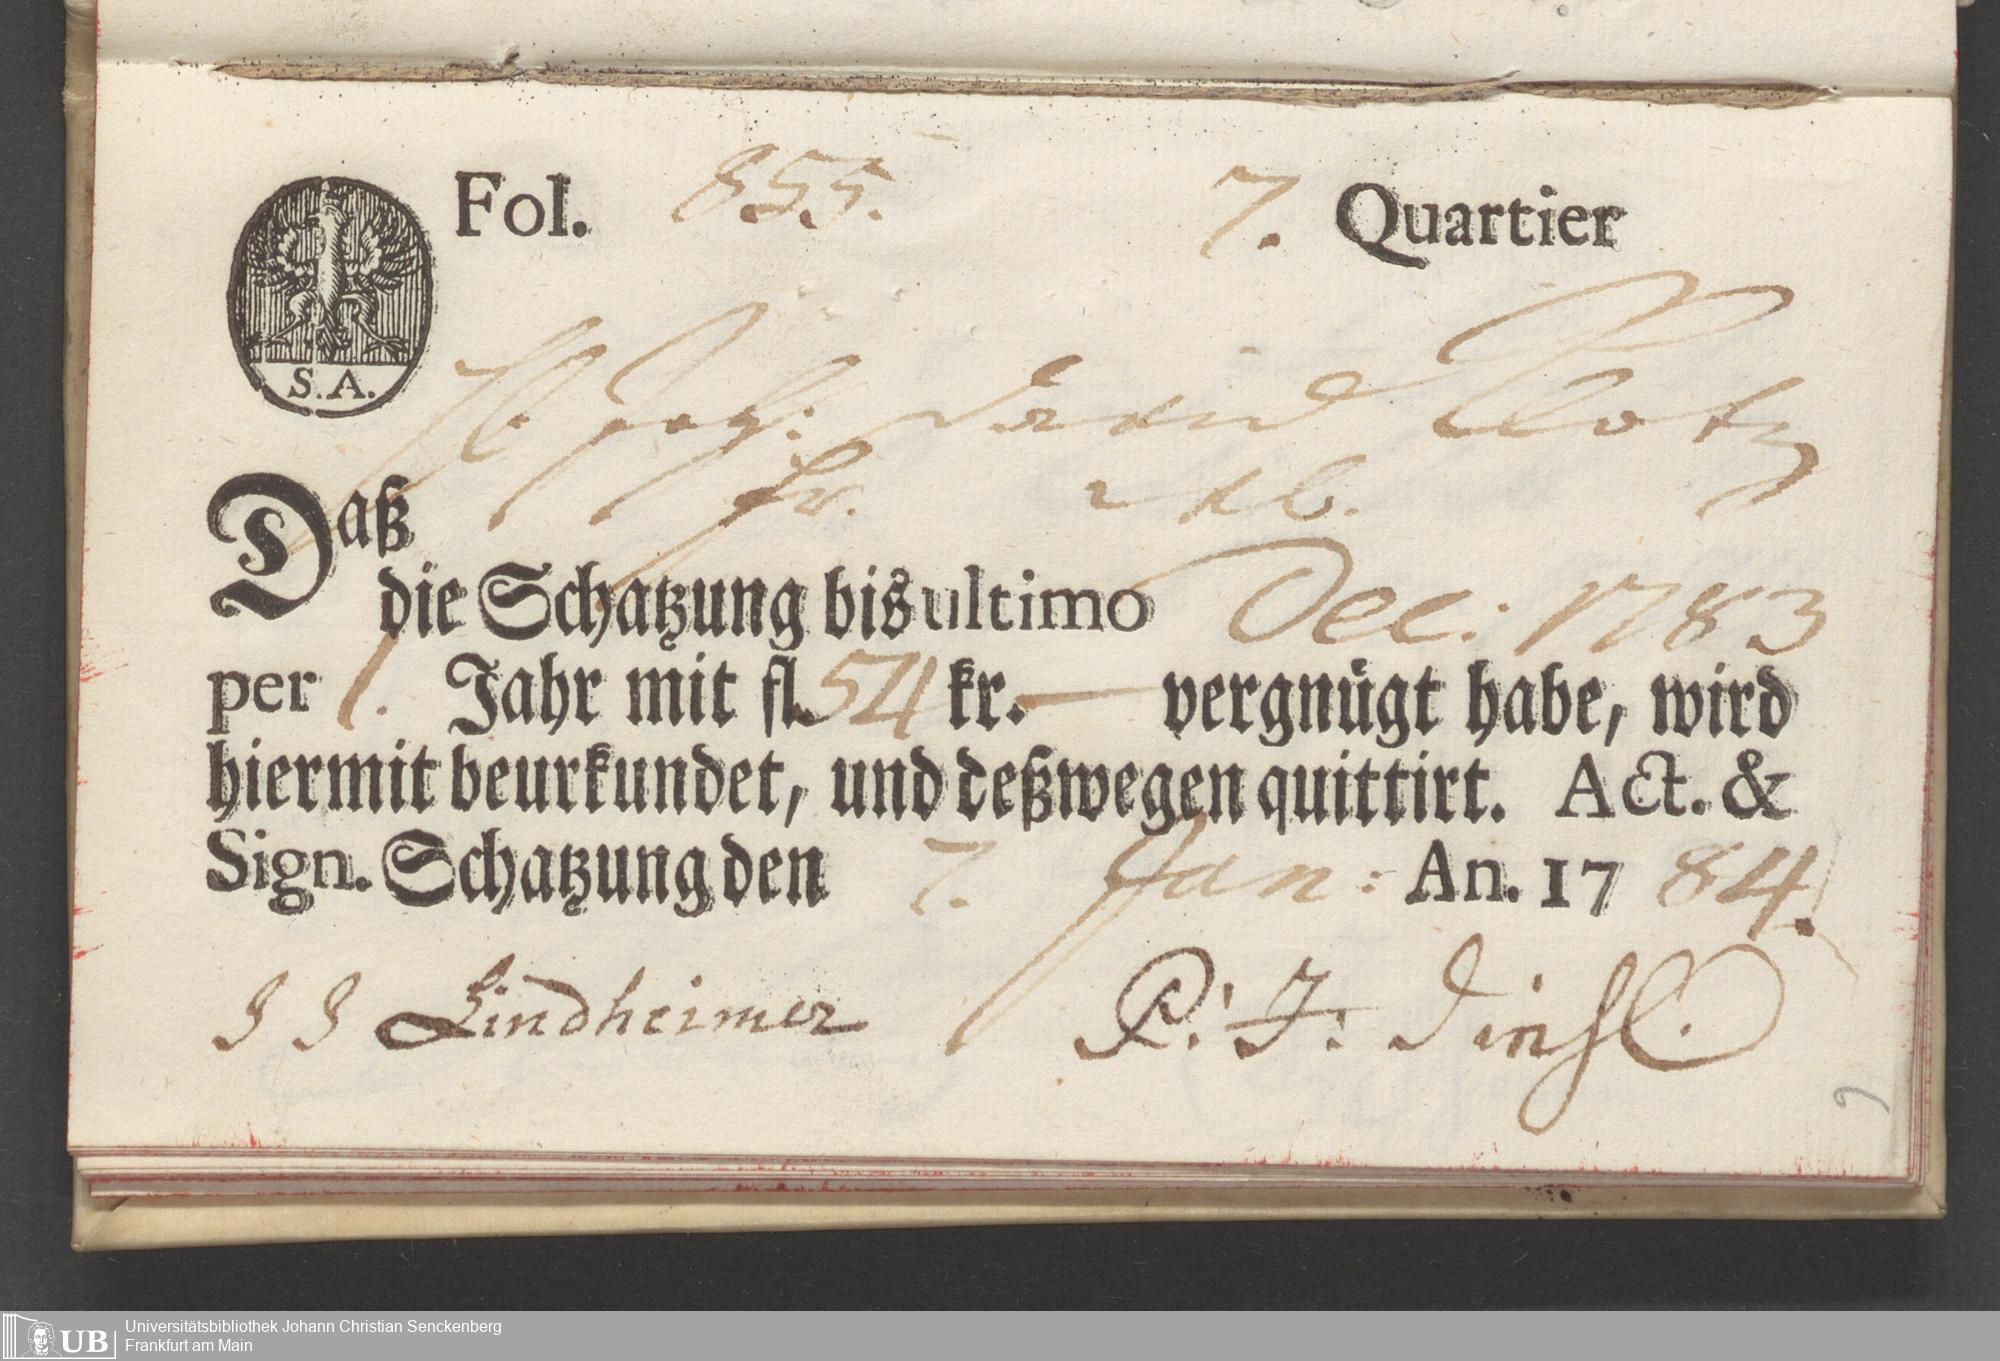 Fol. 855. 7. Quartier
S. A.
H. Joh: David Clotz
Daß
die Schatzung bis ultimo Dec: 1783
per 1. Jahr mit fl. 54 kr. — vergnügt habe, wird
hiermit beurkundet, und deßwegen quittirt. Act. &
Sign. Schatzung den 7. Jan: An. 1784.
J J Lindheimer P: F: Diehl.
9
UB Universitätsbibliothek Johann Christian Senckenberg
Frankfurt am Main